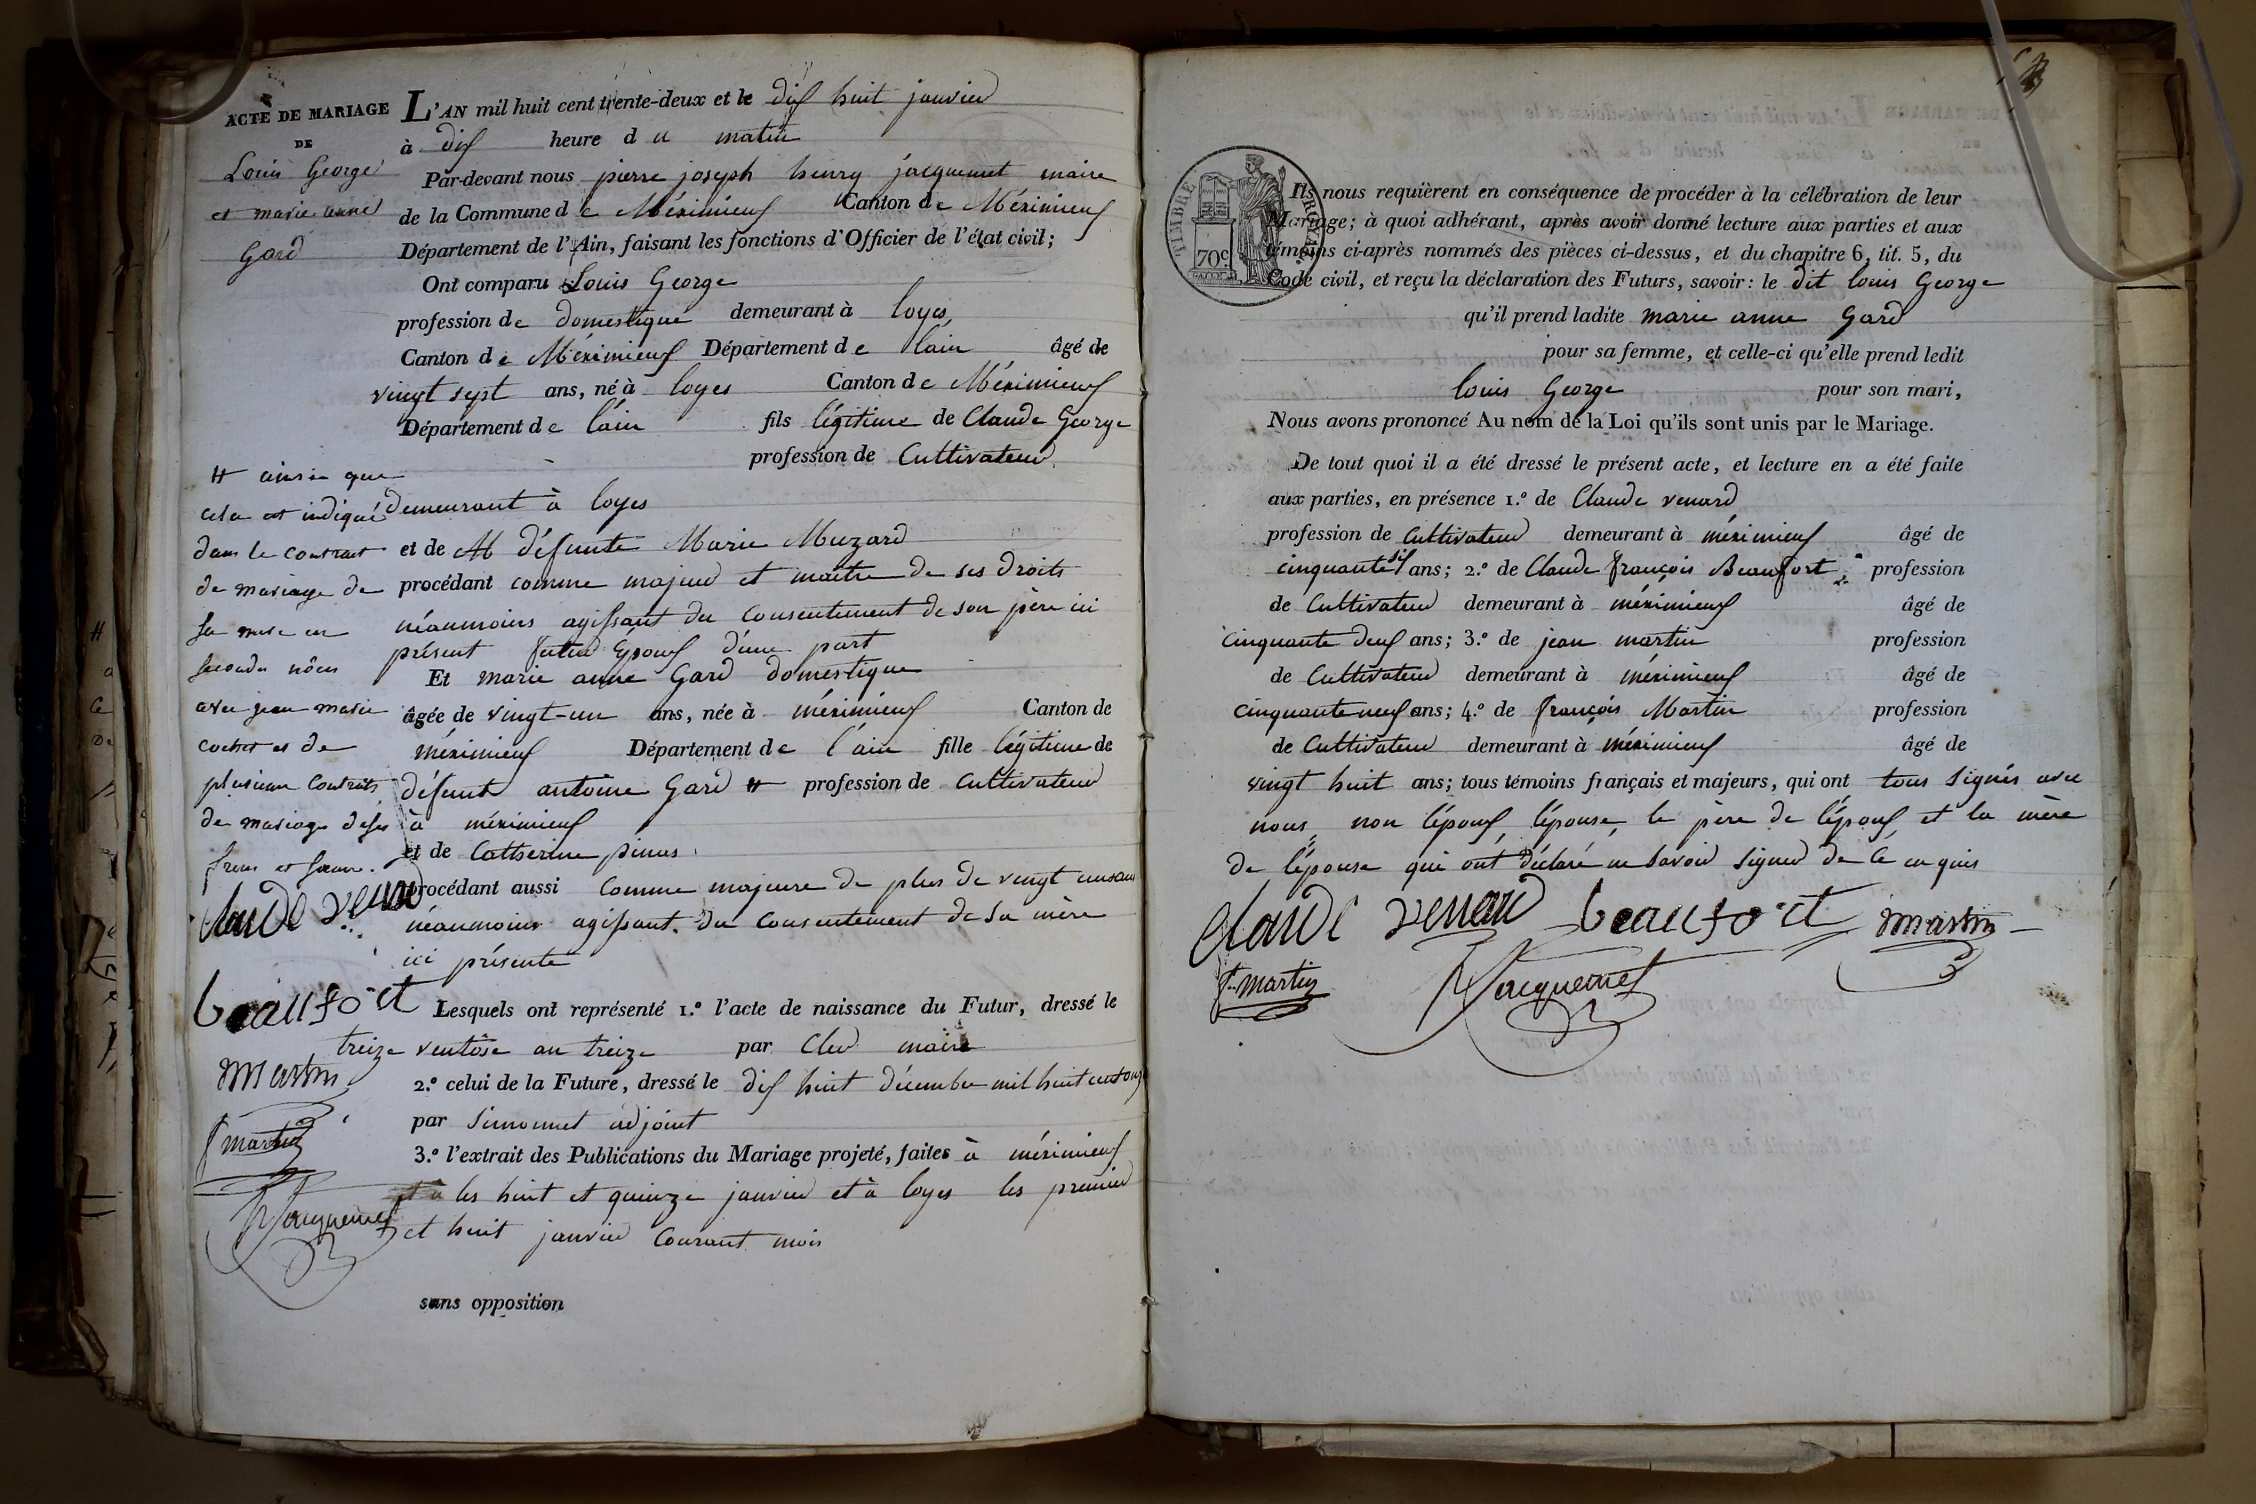 ACTE DE MARIAGE
DE
Louis George
et marie anne
Gard
L'AN mil huit cent trente-deux et le dix huit janvier
à dix heure du matin
Par-devant nous pierre joseph henry jacquemet maire
de la Commune de Méximieux Canton de Méximieux
Département de l'Ain, faisant les fonctions d'Officier de l'état civil;
Ont comparu Louis George
profession de domestique demeurant à loyes
Canton de Méximieux Département de l'ain âgé de
vingt sept ans, né à loyes Canton de Méximieux
Département de l'ain fils légitime de Claude George
profession de Cultivateur
demeurant à loyes
et de défunte Marie Muzard
procédant comme majeur et maitre de ses droits
néanmoins agissant du consentement de son père ici
présent futur Époux d'une part
Et marie anne Gard domestique
âgée de vingt-un ans, née à méximieux Canton de
méximieux Département de l'ain fille légitime de
défunt antoine Gard # profession de Cultivateur
à méximieux
et de Catherine pinus
procédant aussi comme majeure de plus de vingt un ans
néanmoins agissant du consentement de sa mère
ici présente
# ainsi que
cela est indiqué
dans le contrat
de mariage de
sa mère en
secondes nôces
avec jean marie
cochet et de
plusieurs contrats
de mariages de ses
frères et soeurs.
Claude venard
beaufort
martin
f martin
Jacquemet
Lesquels ont représenté 1.º l'acte de naissance du Futur, dressé le
treize ventôse an treize par Cler maire
2.º celui de la Future, dressé le dix huit décembre mil huit cent onze
par Simonnet adjoint
3.º l'extrait des Publications du Mariage projeté, faites à méximieux
les huit et quinze janvier et à loyes les premier
et huit janvier courant mois
sans opposition
TIMBRE ROYAL
70 c
Ils nous requièrent en conséquence de procéder à la célébration de leur
Mariage; à quoi adhérant, après avoir donné lecture aux parties et aux
témoins ci-après nommés des pièces ci-dessus, et du chapitre 6, tit. 5, du
Code civil, et reçu la déclaration des Futurs, savoir: le dit louis George
qu'il prend ladite marie anne Gard
pour sa femme, et celle-ci qu'elle prend ledit
louis George pour son mari,
Nous avons prononcé Au nom de la Loi qu'ils sont unis par le Mariage.
De tout quoi il a été dressé le présent acte, et lecture en a été faite
aux parties, en présence 1.º de Claude venard
profession de Cultivateur demeurant à méximieux âgé de
cinquante six ans; 2.º de Claude françois Beaufort profession
de Cultivateur demeurant à méximieux âgé de
cinquante deux ans; 3.º de jean martin profession
de Cultivateur demeurant à méximieux âgé de
cinquante neuf ans; 4.º de françois Martin profession
de Cultivateur demeurant à méximieux âgé de
vingt huit ans; tous témoins français et majeurs, qui ont tous signés avec
nous, non l'époux, l'épouse, le père de l'époux et la mère
de l'épouse qui ont déclaré ne savoir signer de ce enquis
Claude venard beaufort martin
f martin Jacquemet